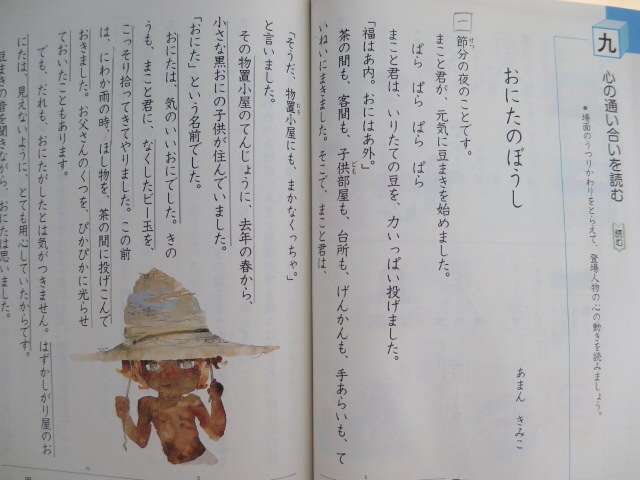 九
心の通い合いを読む
読む
●場面のうつりかわりをとらえて、登場人物の心の動きを読みましょう。
おにたのぼうし
あまん きみこ
一 節分の夜のことです。
せつ
まこと君が、元気に豆まきを始めました。
ぱら ぱら ぱら ぱら
まこと君は、いりたての豆を、力いっぱい投げました。
「福はあ内。おにはあ外。」
茶の間も、客間も、子供部屋も、台所も、げんかんも、手あらいも、て
ども
いねいにまきました。そこで、まこと君は、
「そうだ、物置小屋にも、まかなくっちゃ。」
おき
と言いました。
その物置小屋のてんじょうに、去年の春から、
小さな黒おにの子供が住んでいました。
「おにた」という名前でした。
おにたは、気のいいおにでした。きの
うも、まこと君に、なくしたビー玉を、
こっそり拾ってきてやりました。この前
は、にわか雨の時、ほし物を、茶の間に投げこんで
おきました。お父さんのくつを、ぴかぴかに光らせ
ておいたこともあります。
でも、だれも、おにたがしたとは気がつきません。はずかしがり屋のお
にたは、見えないように、とても用心していたからです。
豆まきの音を聞きながら、おにたは思いました。